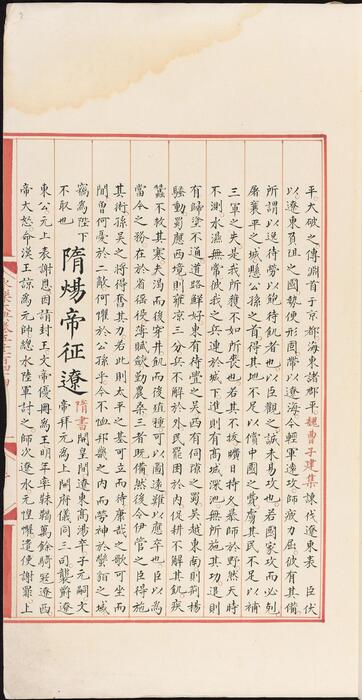 平大破之傳淵首于京都海東諸郡平魏曹子建集諫伐遼東表　臣伏
以遼東負阻之國勢便形固帶以遼海今輕軍遠攻師疲力屈彼有其備
所謂以逸待勞以飽待飢者也以臣觀之誠未易攻也若國家攻而必剋
屠襄平之城懸公孫之首得其地不足以償中國之費虜其民不足以補
三軍之失是我所獲不如所喪也若其不拔曠日持久暴師於野然天時
不測水濕無常彼我之兵連於城下進則有高城深池無所施其功退則
有歸塗不通道路鮮好東有待釁之吳西有伺隙之蜀吳越東南則荊楊
騷動蜀應西境則雍涼三分兵不解於外民罷困於內促耕不解其飢疾
蠶不救其寒夫渴而後穿井飢而後殖種可以圖遠難以應卒也臣以為
當今之務在於省徭役薄賦歛勤農桑三者既備然後令伊管之臣得施
其術孫吳之將得奮其力若此則太平之基可立而待康哉之歌可坐而
聞曾何憂於二敵何懼於公孫乎今不恤邦畿之內而勞神於蠻貊之域
竊為陛下
不取也
隋煬帝征遼
隋書開皇間遼東高湯卒子元嗣文
帝拜元為上開府儀同三司襲爵遼
東公元上表謝恩因請封王文帝優冊為王明年率靺鞨萬餘騎寇遼西
帝大怒命漢王諒為元帥總水陸軍討之師次遼水元惶懼遣使謝罪上